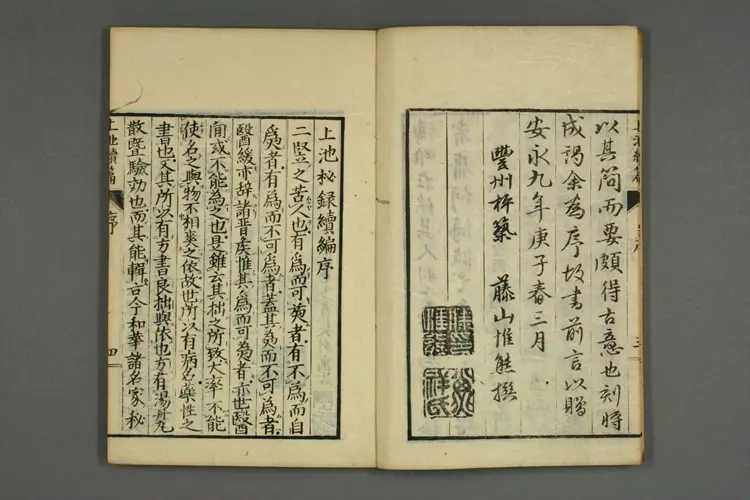 以其簡而要頗得古意也刻將
成謁余為序故書前言以贈
安永九年庚子春三月
豐州杵築 藤山惟熊撰
上池秘録續編序
二竪之苦人也有為而可爲者有不為而自
爲者有為而不可為者蓋其爲而不可為者
醫緩亦辞諸晋矦惟其為而可爲者亦世醫
甯或不能為之也是雖云其拙之所致大率不能
使名之與物不相爽之依故也所以有病名藥性之
書也又其所以有方書良拙與依也方有湯散丸
散暨驗効也而其能輯古今和華諸名家秘
上池續編
序
四
上池續編
三